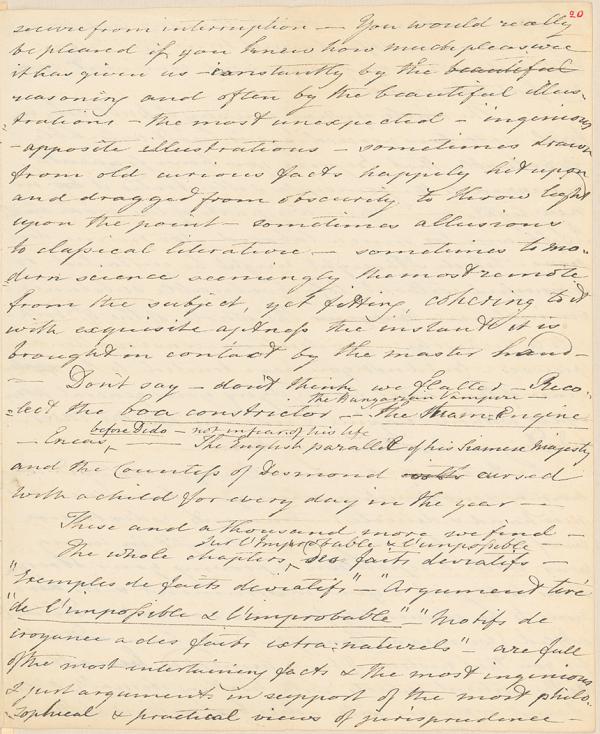 20
secure from interruption — You would really
be pleased if you knew how much pleasure
it has given us — constantly by the beautiful
reasoning and often by the beautiful illus-
trations — the most unexpected — ingenious
- apposite illustrations — sometimes drawn
from old curious facts happily hit upon
and dragged from obscurity to throw light
upon the point — sometimes allusions
to classical literature — sometimes to mo-
dern science seemingly the most remote
from the subject, yet fitting, cohering to it
with exquisite aptness the instant it is
brought in contact by the master hand —
— Don't say — don't think we flatter — Reco-
the Hungarian Vampire —
-lect the boa constrictor — the Steam-Engine
before Dido — not in fear of his life
— Eneas — The English parallel of his Siamese Majesty
and the Countess of Desmond cursed
with a child for every day in the year —
These and a thousand more we find —
sur l'Improbable & l'impossible —
The whole chapters, des faits deviatifs —
"Exemples de faits deviatifs" — "Argument tiré
"de l'impossible & l'improbable" — "Motifs de
croyance a des faits extra-naturels" — are full
of the most entertaining facts & the most ingenious
& just arguments in support of the most philo-
-sophical & practical views of jurisprudence —